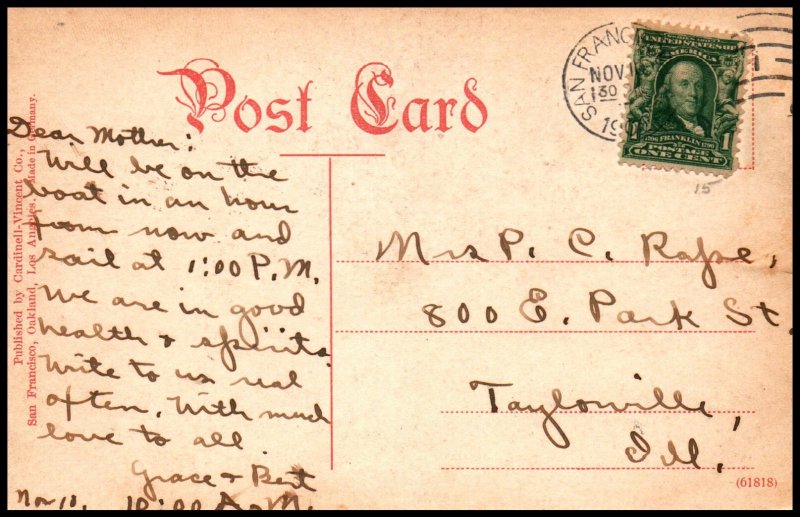 Post Card
Published by Cardinell-Vincent Co.,
San Francisco, Oakland, Los Angeles. Made in Germany.
SAN FRANC
NOV 1
1 30
UNITED STATES OF
AMERICA
1706 FRANKLIN 1790
POSTAGE
1 ONE CENT 1
15
Dear Mother:
Will be on the
boat in an hour
from now and
sail at 1:00 P.M.
We are in good
health + spirits
Write to us real
often. With much
love to all
Grace + Bert
Nov 18, 10:00 A.M.
Mrs P. C.
800 E. Park St.
Taylorville,
Ill.
(61818)